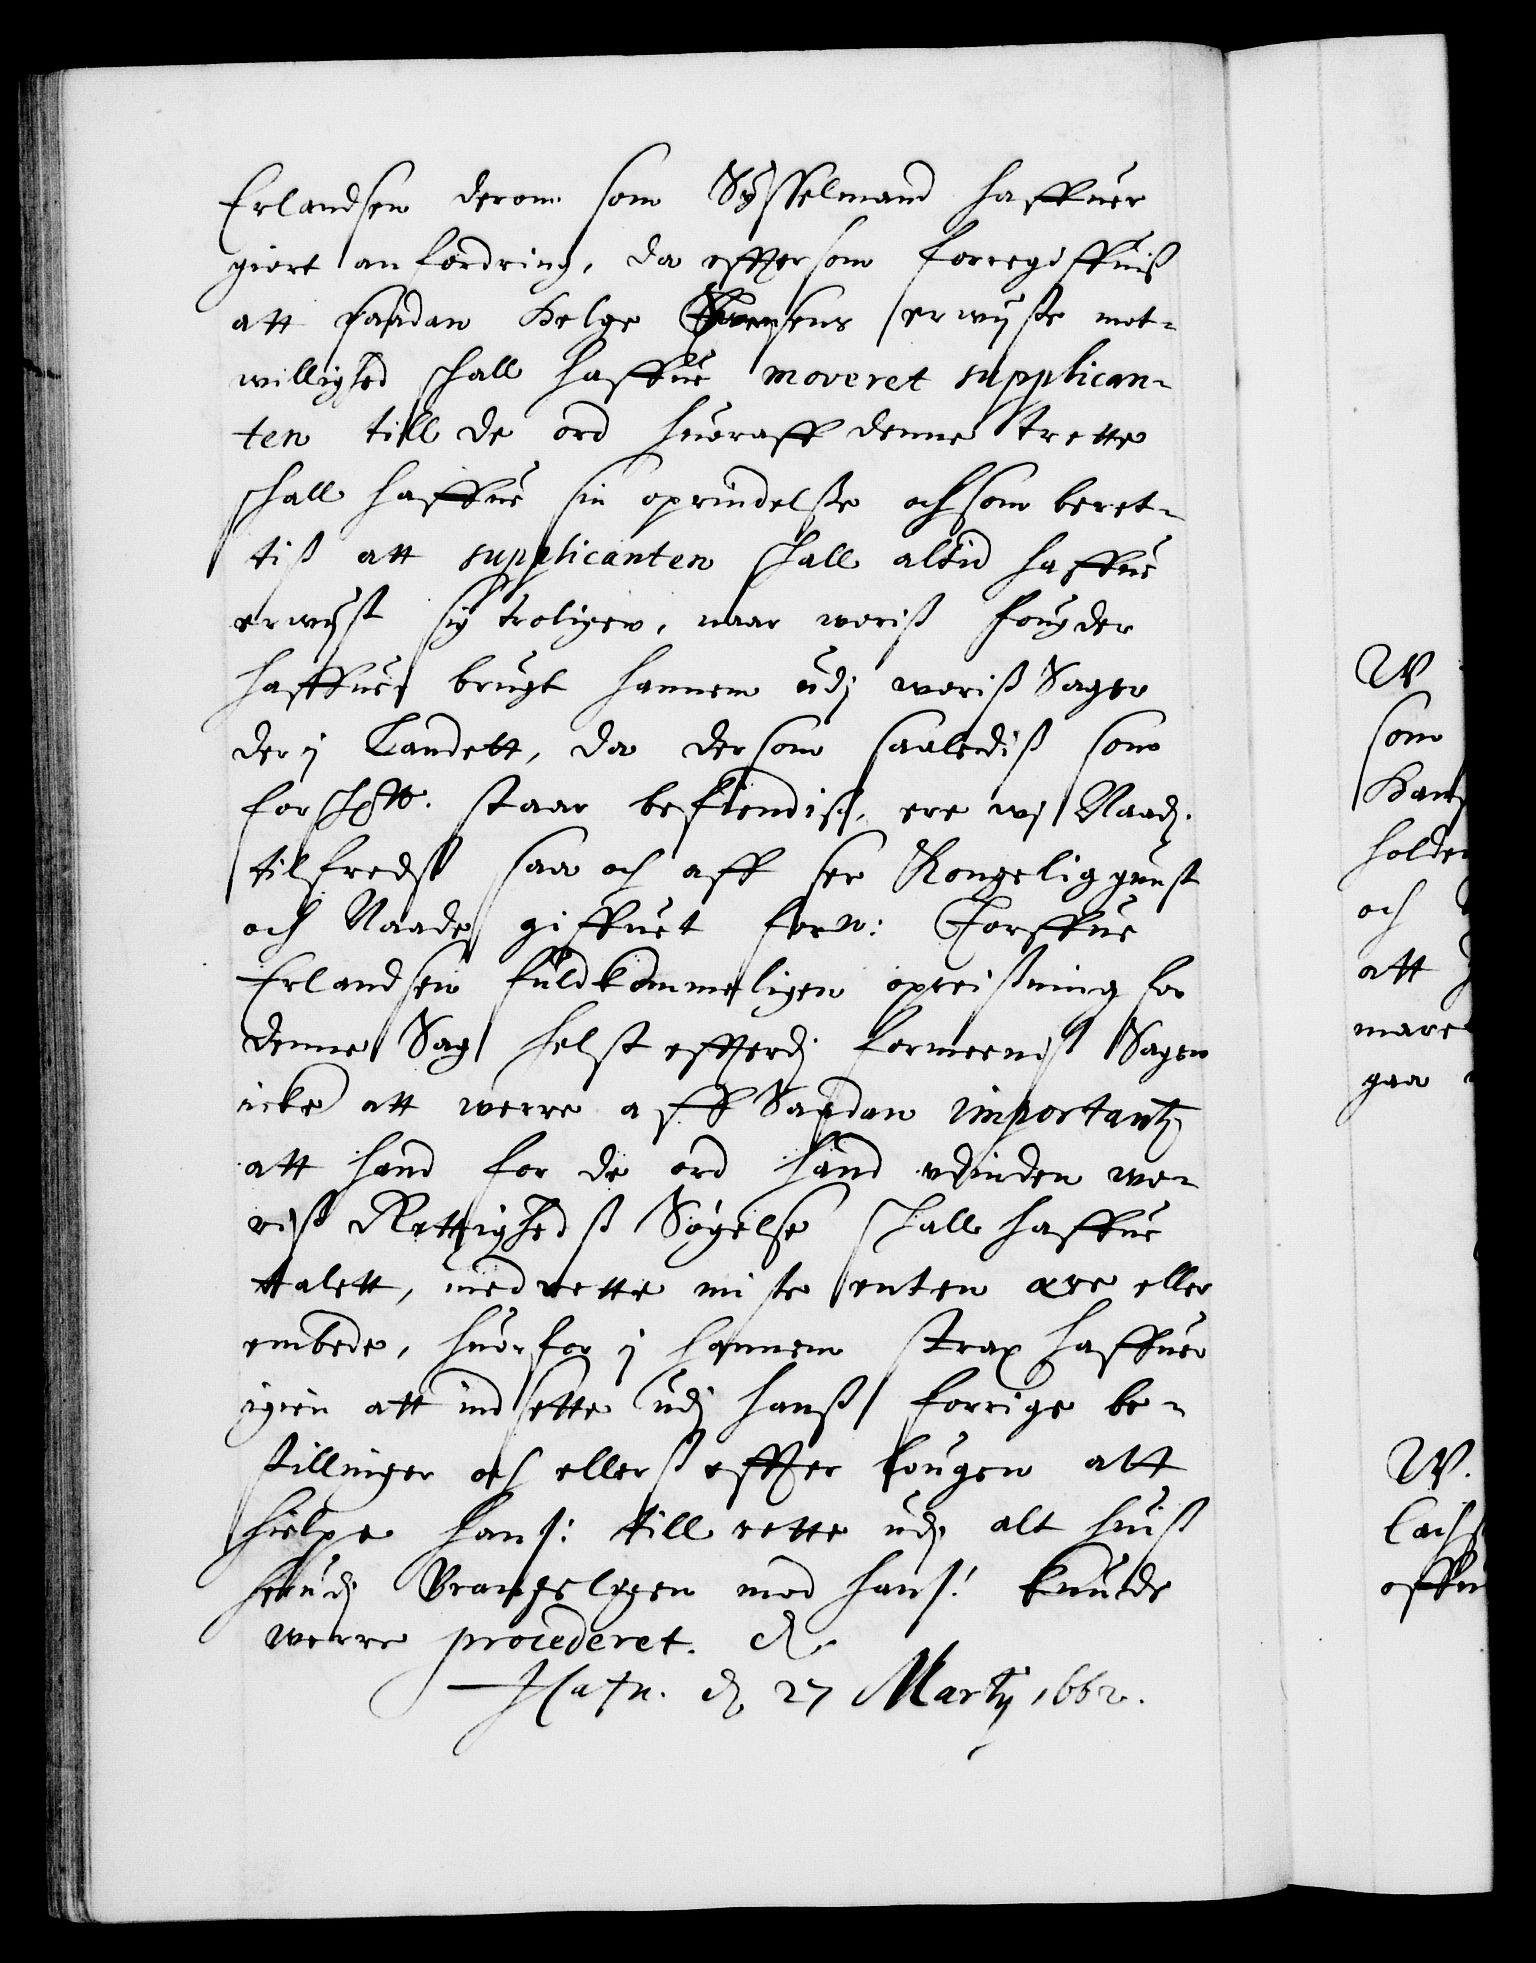 Erlandsen derom som Sÿsselmand haffuer
giort anfordring, da effter som forregiffuis
att saadan Helge Ifuersens erwÿste mot-
willighed schall haffue moveret supplican-
ten till de ord huoraff denne trette
schall haffue sin oprindelsse och som beret-
tiß att supplicanten schall altid haffue
erwÿst sig troligen, naar woriß fougder
haffuer brugt hannem udj woriß Sager
der j Landett, da dersom saaledis som
forschr. staar befindiß, ere wj Naad.
tilfredß saa och aff ser Kongelig gunst
och Naade giffuet forn: Torffue
Erlandsen fuldkommeligen opreißning for
denne Sag helst efftterdj formeeniß Sagen
icke att werre aff Saadan importantz
att hand for de ord hand udinden wo-
riß Rettigheds Søgelse schall haffue
talett, med rette miste enten ære eller
embede, huorfor j hannem strax haffuer
igien att indsette udj hanß forrige be-
stillinger och ellerß effter lougen att
hielpe hans: till rette udj alt huiß
herudj Vrangeligen mod hans: kunde
werre procederet. d.
Hafn. d. 27 Martij 1662.
W
som
Hans
holde
och
att
mare
gaa
W.
Lachs
offu